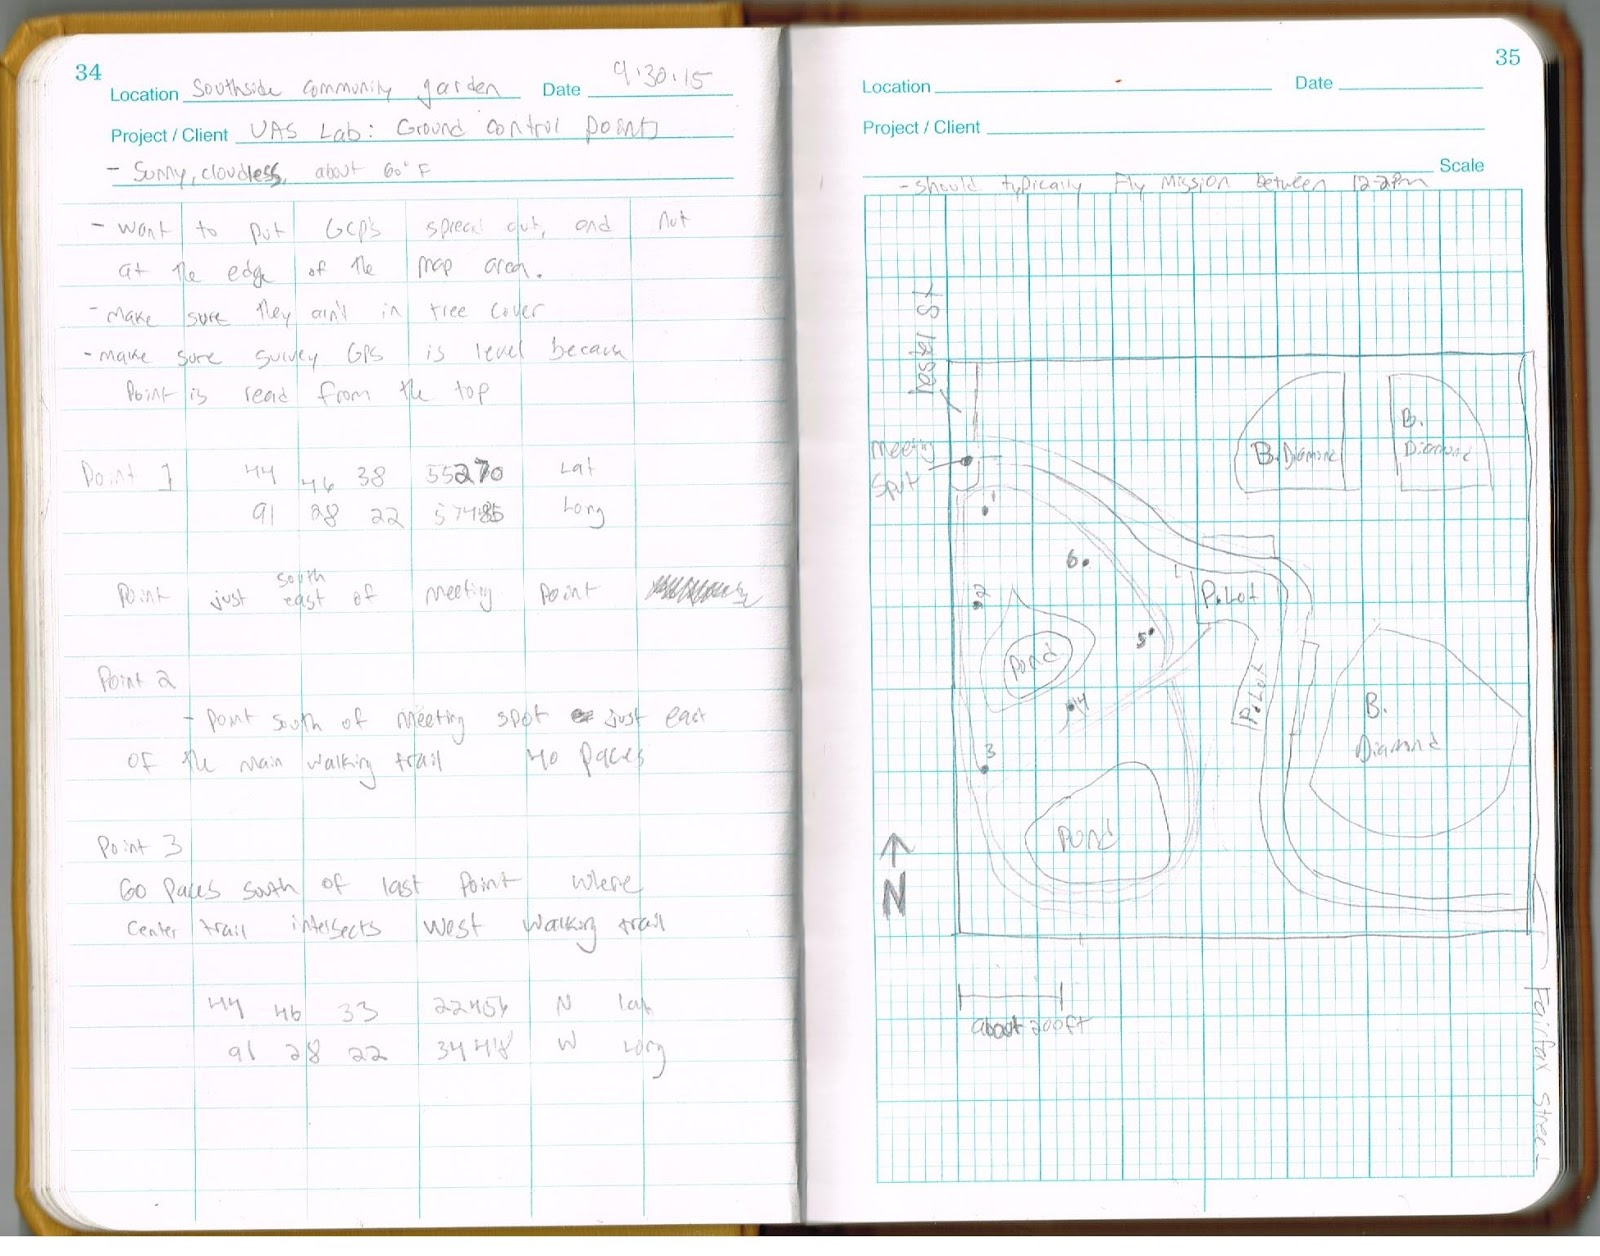 34
Location Southside Community garden Date 9.30.15
Project / Client UAS Lab: Ground control points
- Sunny, cloudless, about 60° F
- want to put GCP's spread out, and not
at the edge of the map area.
- make sure they ain't in tree cover
- make sure survey GPS is level because
Point is read from the top
Point 1 44 46 38 55270 Lat
91 28 22 57485 Long
south
Point just east of meeting point
Point 2
- point south of meeting spot just east
of the main walking trail 40 paces
Point 3
60 paces south of last point where
center trail intersects west walking trail
44 46 33 22456 N lat
91 28 22 34418 W Long
35
Location Date
Project / Client
Scale
- should typically Fly mission between 12-2pm
St
meeting
spot
B. Diamond
B.
Diamond
1
6
2
P. Lot
5
Pond
P. Lot
4
B.
Diamond
3
Pond
N
about 200ft
Fairfax Street